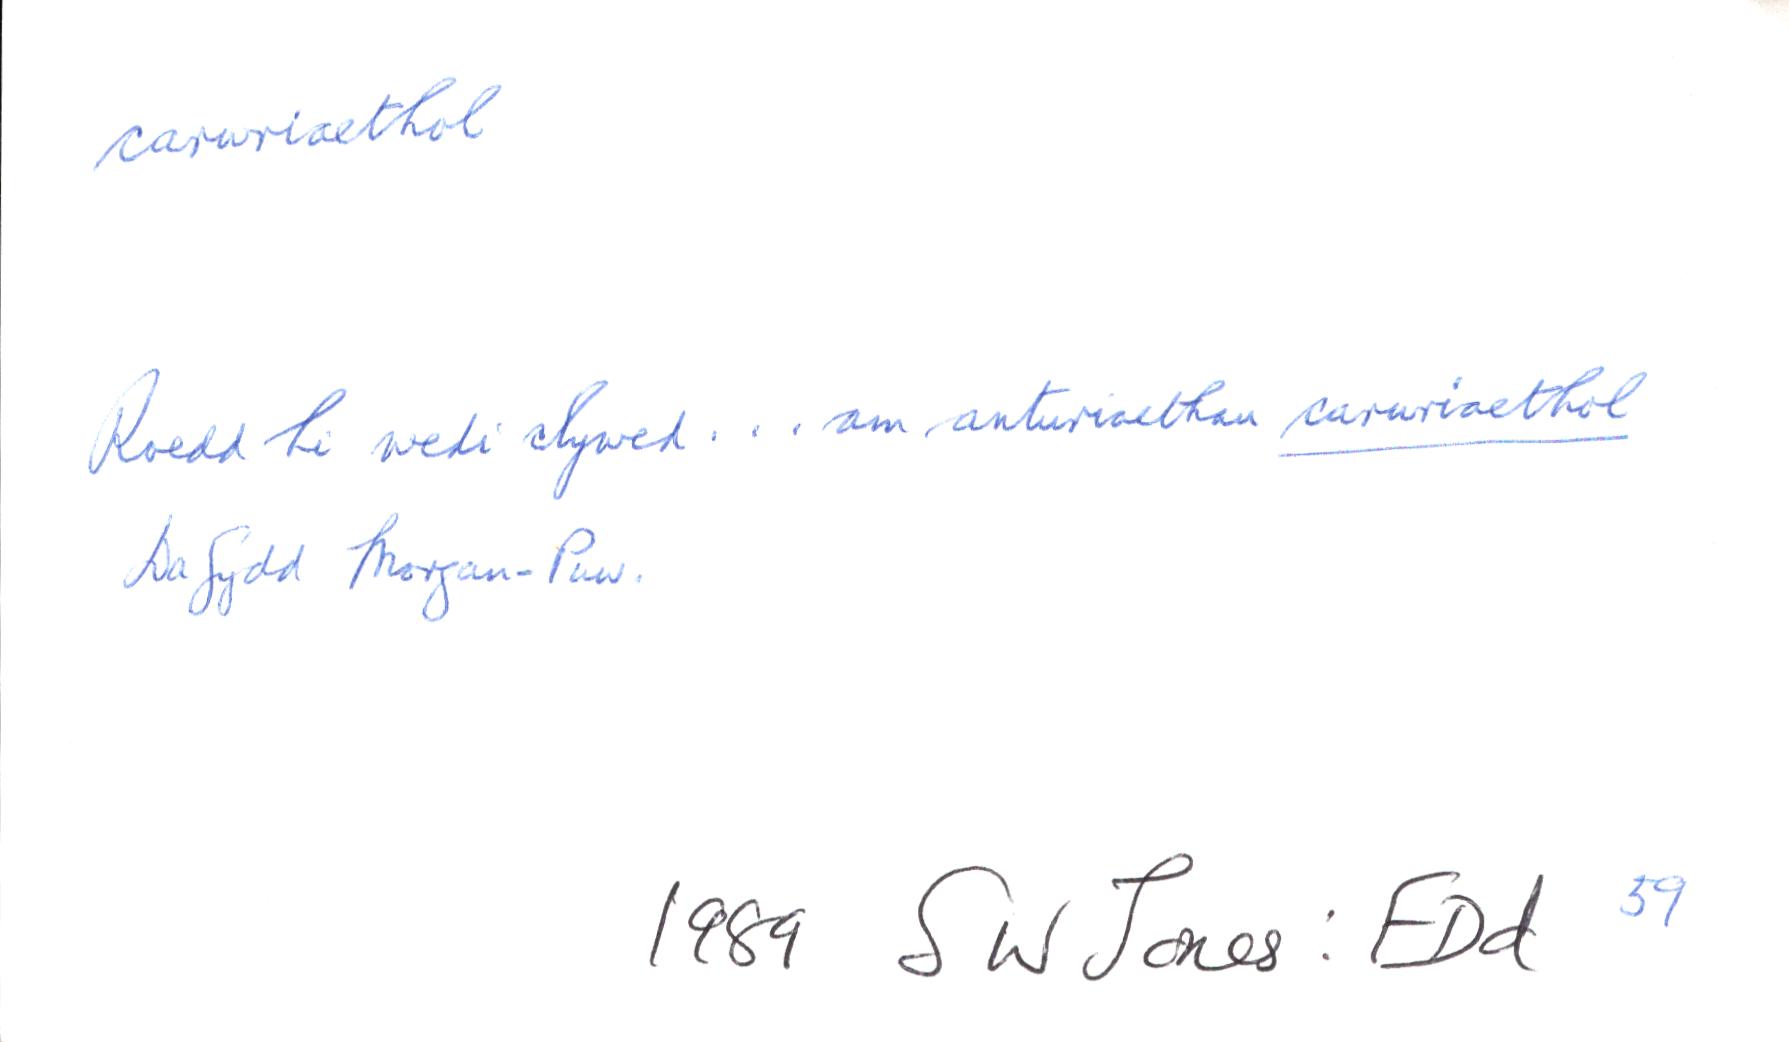 carwriaethol
Roedd hi wedi clywed . . . am anturiaethau carwriaethol
Dafydd Morgan-Puw.
1989 SW Jones: EDd 59